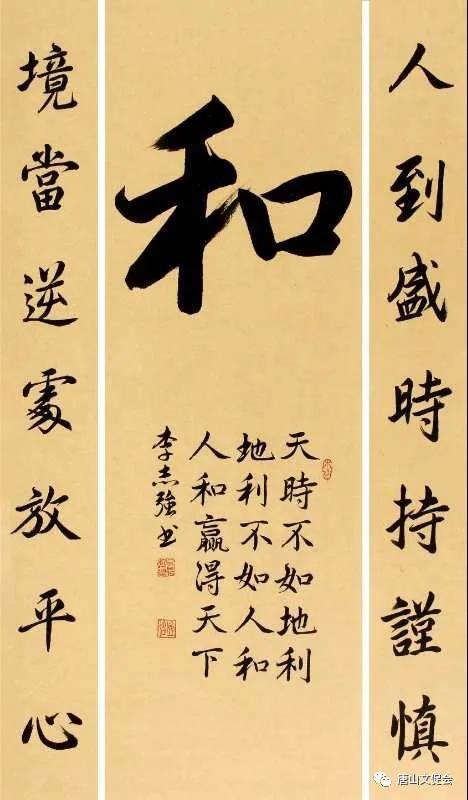 人到盛時持謹慎
境當逆處放平心
和
天時不如地利
地利不如人和
人和贏得天下
李志強书
唐山文促会